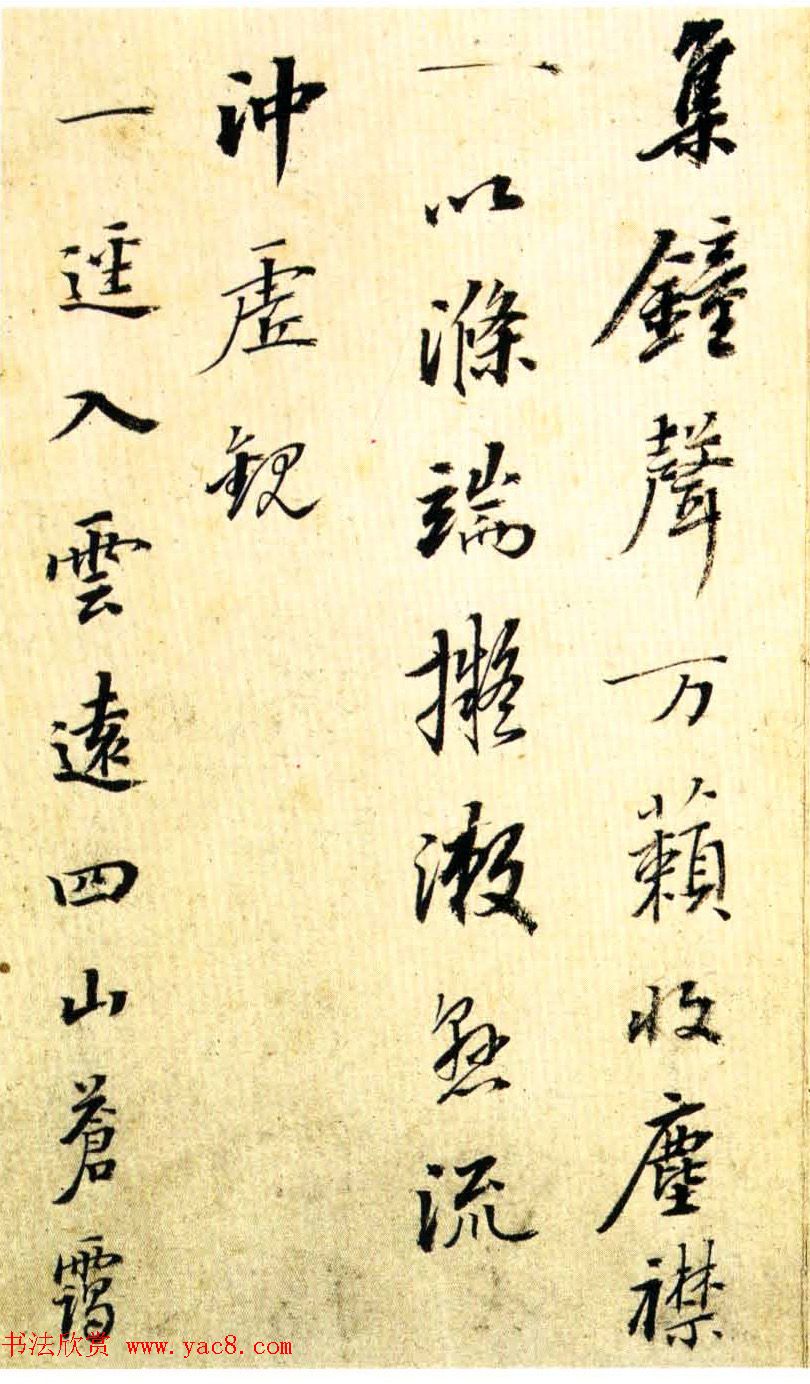 集鐘聲万籟收塵襟
一以滌端擬漱懸流
沖虛觀
一逕入雲遠四山蒼靄
书法欣赏 www.yac8.com